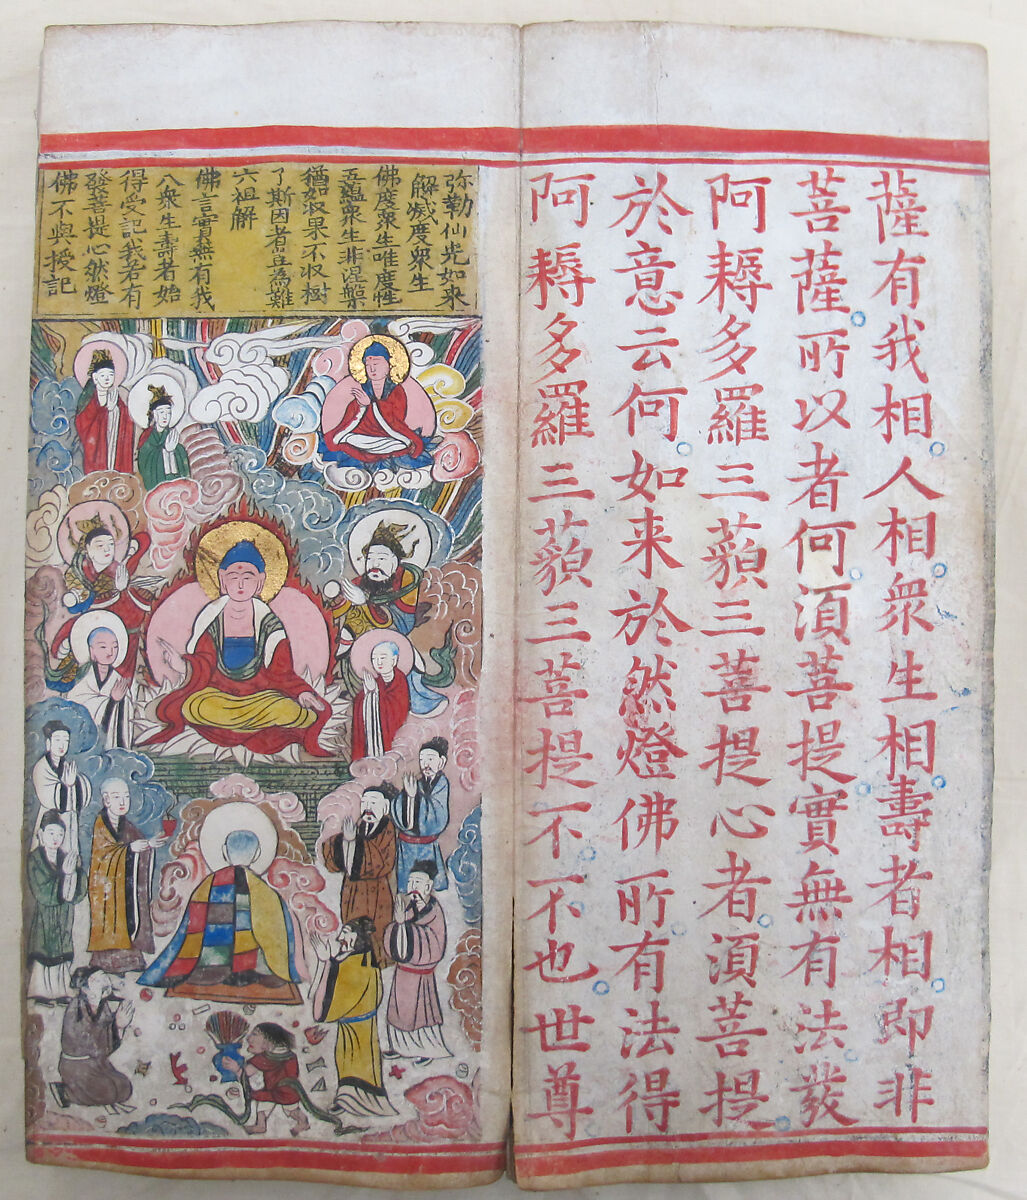 薩有我相。人相。衆生相。壽者相。即非
菩薩。所以者何。須菩提。實無有法。發
阿耨多羅三藐三菩提心者。須菩提。
於意云何。如来於然燈佛所。有法得
阿耨多羅三藐三菩提。不。不也。世尊
弥勒仙光如来
解滅度衆生
佛度衆生唯度牲
五蘊衆生非涅槃
猶如收果不收樹
了斯因者豈為難
六祖解
佛言實無有我
人衆生壽者始
得受記我若有
發菩提心然燈
佛不與授記